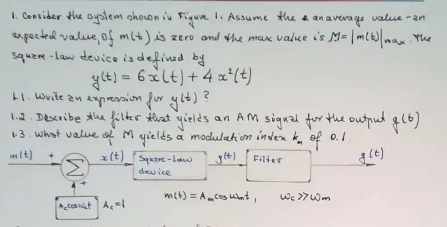 1. Consider the system shown in Figure 1. Assume the an average value - an
expected value, of m(t) is zero and the max value is M=|m(t)|max. The
square-law device is defined by
y(t) = 6x(t) + 4x²(t)
1.1. Write an expression for y(t) ?
1.2. Describe the filter that yields an AM signal for the output g(t)
1.3. What value of M yields a modulation index km of 0.1.
m(t) + Σ x(t) Square-Law device y(t) Filter g(t)
+
Ac cos ωct Ac=1 m(t) = Am cos ωmt, ωc >> ωm